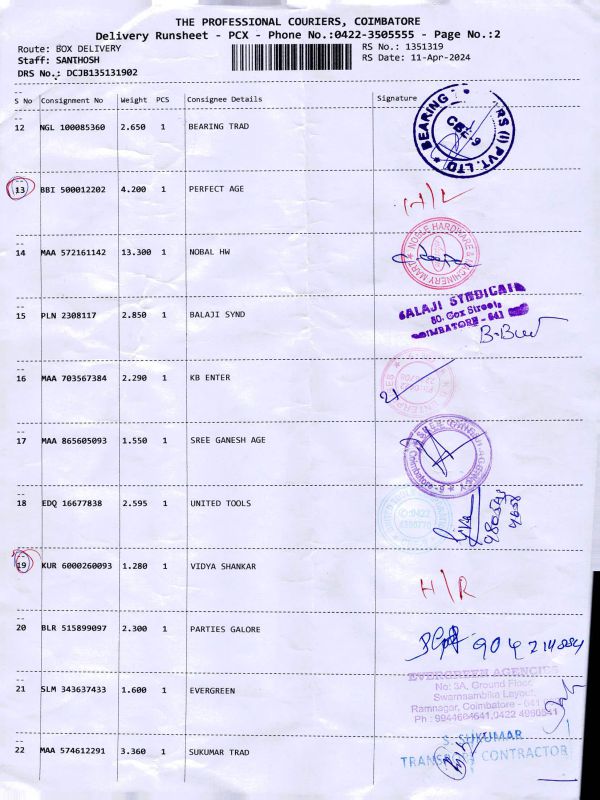 THE PROFESSIONAL COURIERS, COIMBATORE
Delivery Runsheet - PCX - Phone No.:0422-3505555 - Page No.:2
Route: BOX DELIVERY RS No.: 1351319
Staff: SANTHOSH RS Date: 11-Apr-2024
DRS No.: DCJB135131902
S No Consignment No Weight PCS Consignee Details Signature
12 NGL 100085360 2.650 1 BEARING TRAD
BEARING RS (I) PVT. LTD
CBE-9
13 BBI 500012202 4.200 1 PERFECT AGE
14 MAA 572161142 13.300 1 NOBAL HW
NOBLE HARDWARE & MACHINERY MART
15 PLN 2308117 2.850 1 BALAJI SYND
BALAJI SYNDICATE
80, Gox Street,
COIMBATORE - 641
16 MAA 703567384 2.290 1 KB ENTER
17 MAA 865605093 1.550 1 SREE GANESH AGE
SREE GANESH AGENCY
Coimbatore-9
18 EDQ 16677838 2.595 1 UNITED TOOLS
19 KUR 6000260093 1.280 1 VIDYA SHANKAR
H/R
20 BLR 515899097 2.300 1 PARTIES GALORE
21 SLM 343637433 1.600 1 EVERGREEN
EVERGREEN AGENCIES
No: 3A, Ground Floor,
Swarnambika Layout,
Ramnagar, Coimbatore - 641
22 MAA 574612291 3.360 1 SUKUMAR TRAD
S. SUKUMAR
TRANSPORT CONTRACTOR